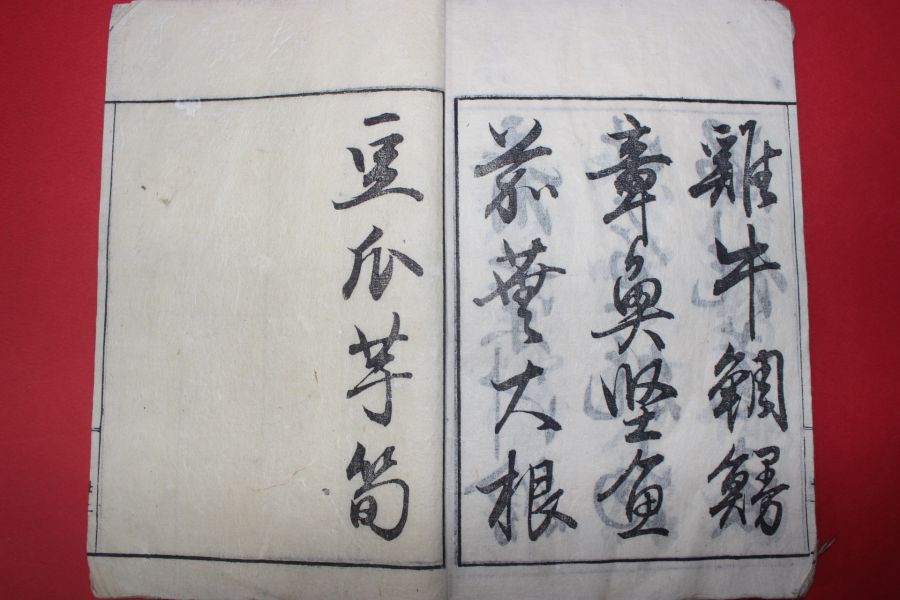 雞牛鯛
章魚堅魚
茄蕪大根
豆瓜芋筍